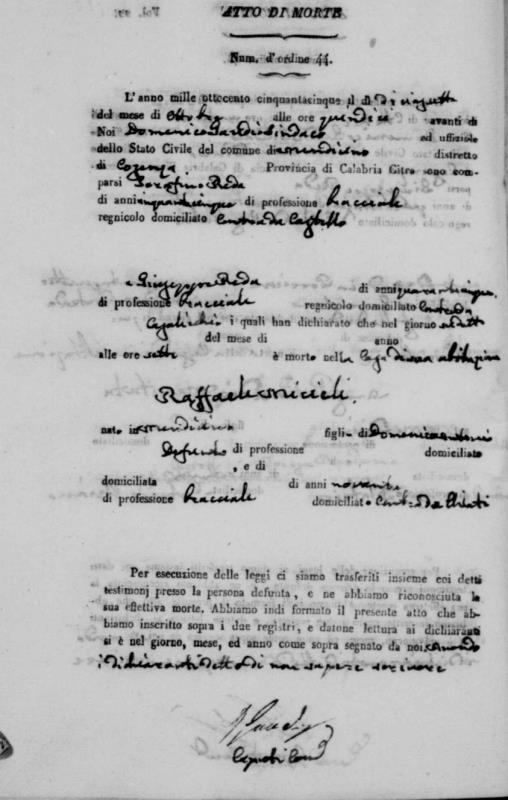 ATTO DI MORTE
Num. d'ordine 44.
L'anno mille ottocento cinquantacinque il dì
del mese di Ottobre alle ore quindici avanti di
Noi Domenico Sindaco ed uffiziale
dello Stato Civile del comune di Mendicino distretto
di Cosenza Provincia di Calabria Citra sono com-
parsi Serafino Reda
di anni cinquantacinque di professione bracciale
regnicolo domiciliato Contrada Castello
e Giuseppe Reda di anni quarantacinque
di professione bracciale regnicolo domiciliato Contrada
i quali han dichiarato che nel giorno sudetto
del mese di anno
alle ore sette è morto nella casa di sua abitazione
Raffaele Micieli
nato in Mendicino figlio di Domenicantonio
Defunto di professione domiciliato
, e di
domiciliata di anni novanta
di professione bracciale domiciliato Contrada
Per esecuzione delle leggi ci siamo trasferiti insieme coi detti
testimonj presso la persona defunta, e ne abbiamo riconosciuta la
sua effettiva morte. Abbiamo indi formato il presente atto che ab-
biamo inscritto sopra i due registri, e datone lettura ai dichiaranti
si è nel giorno, mese, ed anno come sopra segnato da noi avendo
i dichiaranti detto di non sapere scrivere